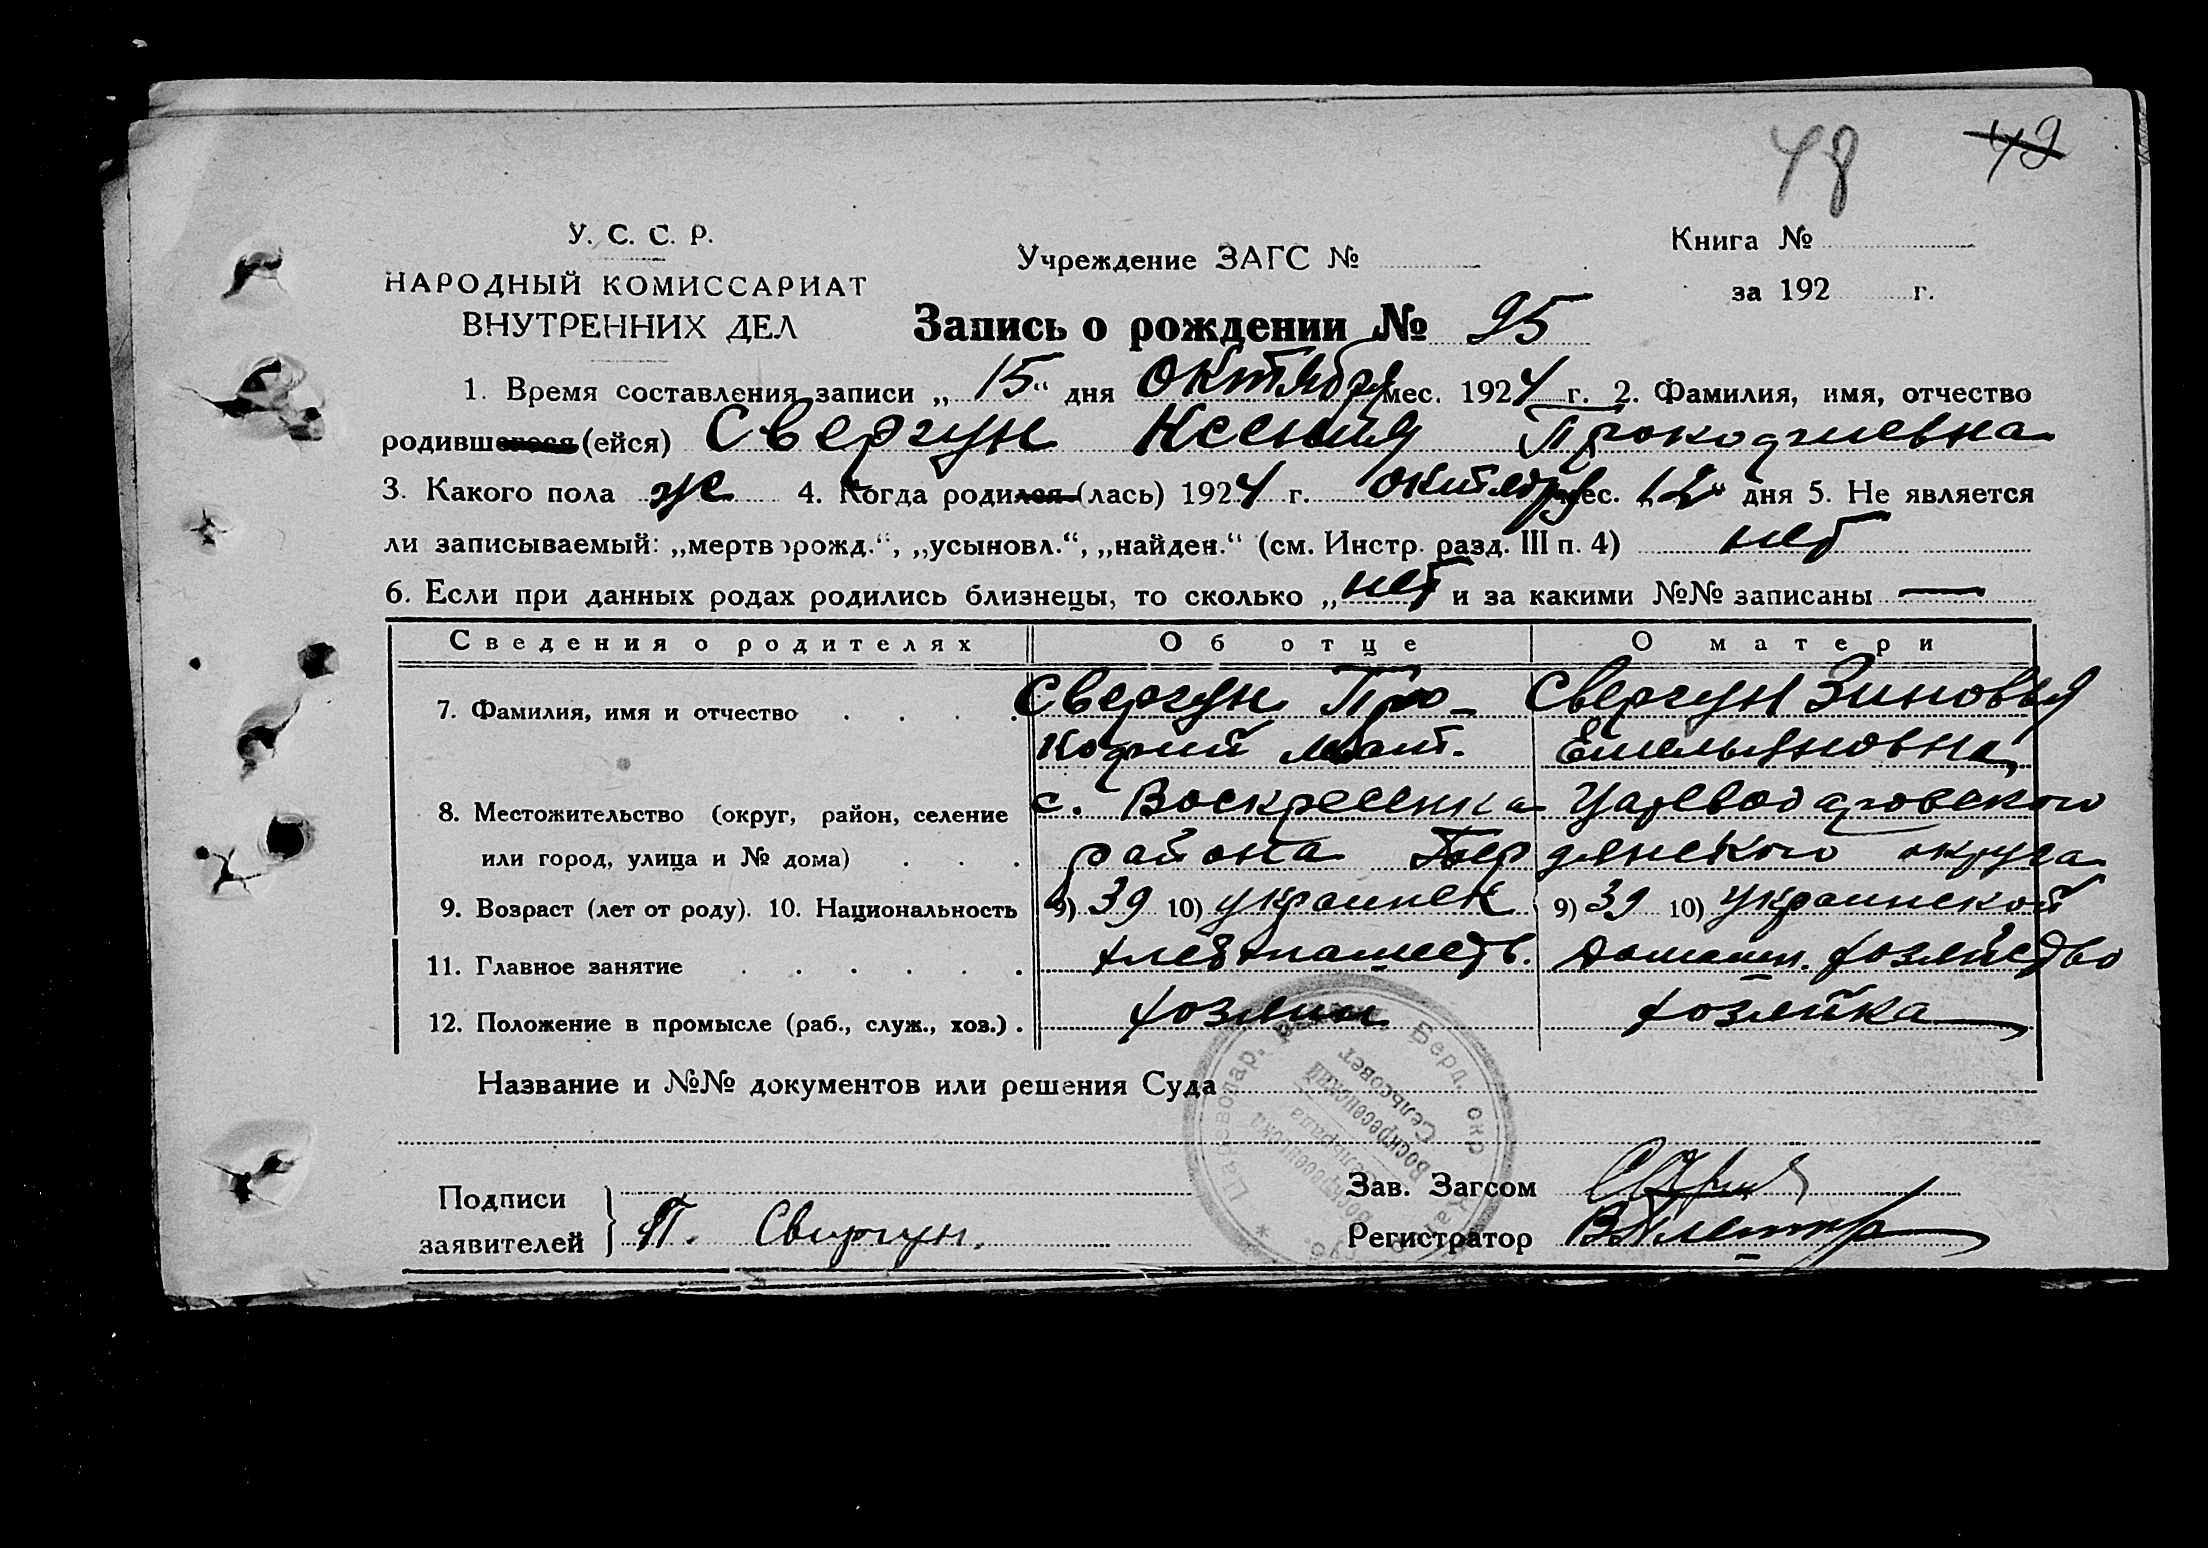 48 49
У. С. С. Р.
НАРОДНЫЙ КОМИССАРИАТ
ВНУТРЕННИХ ДЕЛ
Учреждение ЗАГС №
Книга №
за 192 г.
Запись о рождении № 95
1. Время составления записи „ 15 “ дня октября мес. 1924 г. 2. Фамилия, имя, отчество
родившегося (ейся) Свергун Ксения Прокофиевна
3. Какого пола ж 4. Когда родился (лась) 1924 г. октября мес. 12 дня 5. Не является
ли записываемый: „мертворожд.“, „усыновл.“, „найден.“ (см. Инстр. разд. III п. 4) нет
6. Если при данных родах родились близнецы, то сколько „ нет и за какими №№ записаны —
Сведения о родителях Об отце О матери
7. Фамилия, имя и отчество . . . . Свергун Про- Свергун Зиновья
кофий Мат. Емельяновна
8. Местожительство (округ, район, селение с. Воскресенка Цареводаровского
или город, улица и № дома) . . . района Бердянского округа
9. Возраст (лет от роду). 10. Национальность 9) 39 10) украинск 9) 39 10) украинской
11. Главное занятие . . . . . . хлебопашеств. Домашн. хозяйство
12. Положение в промысле (раб., служ., хоз.) . хозяин хозяйка
Название и №№ документов или решения Суда
Цареводар. Берд. окр.
Воскресенский
Сельсовет
Воскресенська
Сельрада
Подписи
заявителей
П. Свиргун.
Зав. Загсом
Регистратор